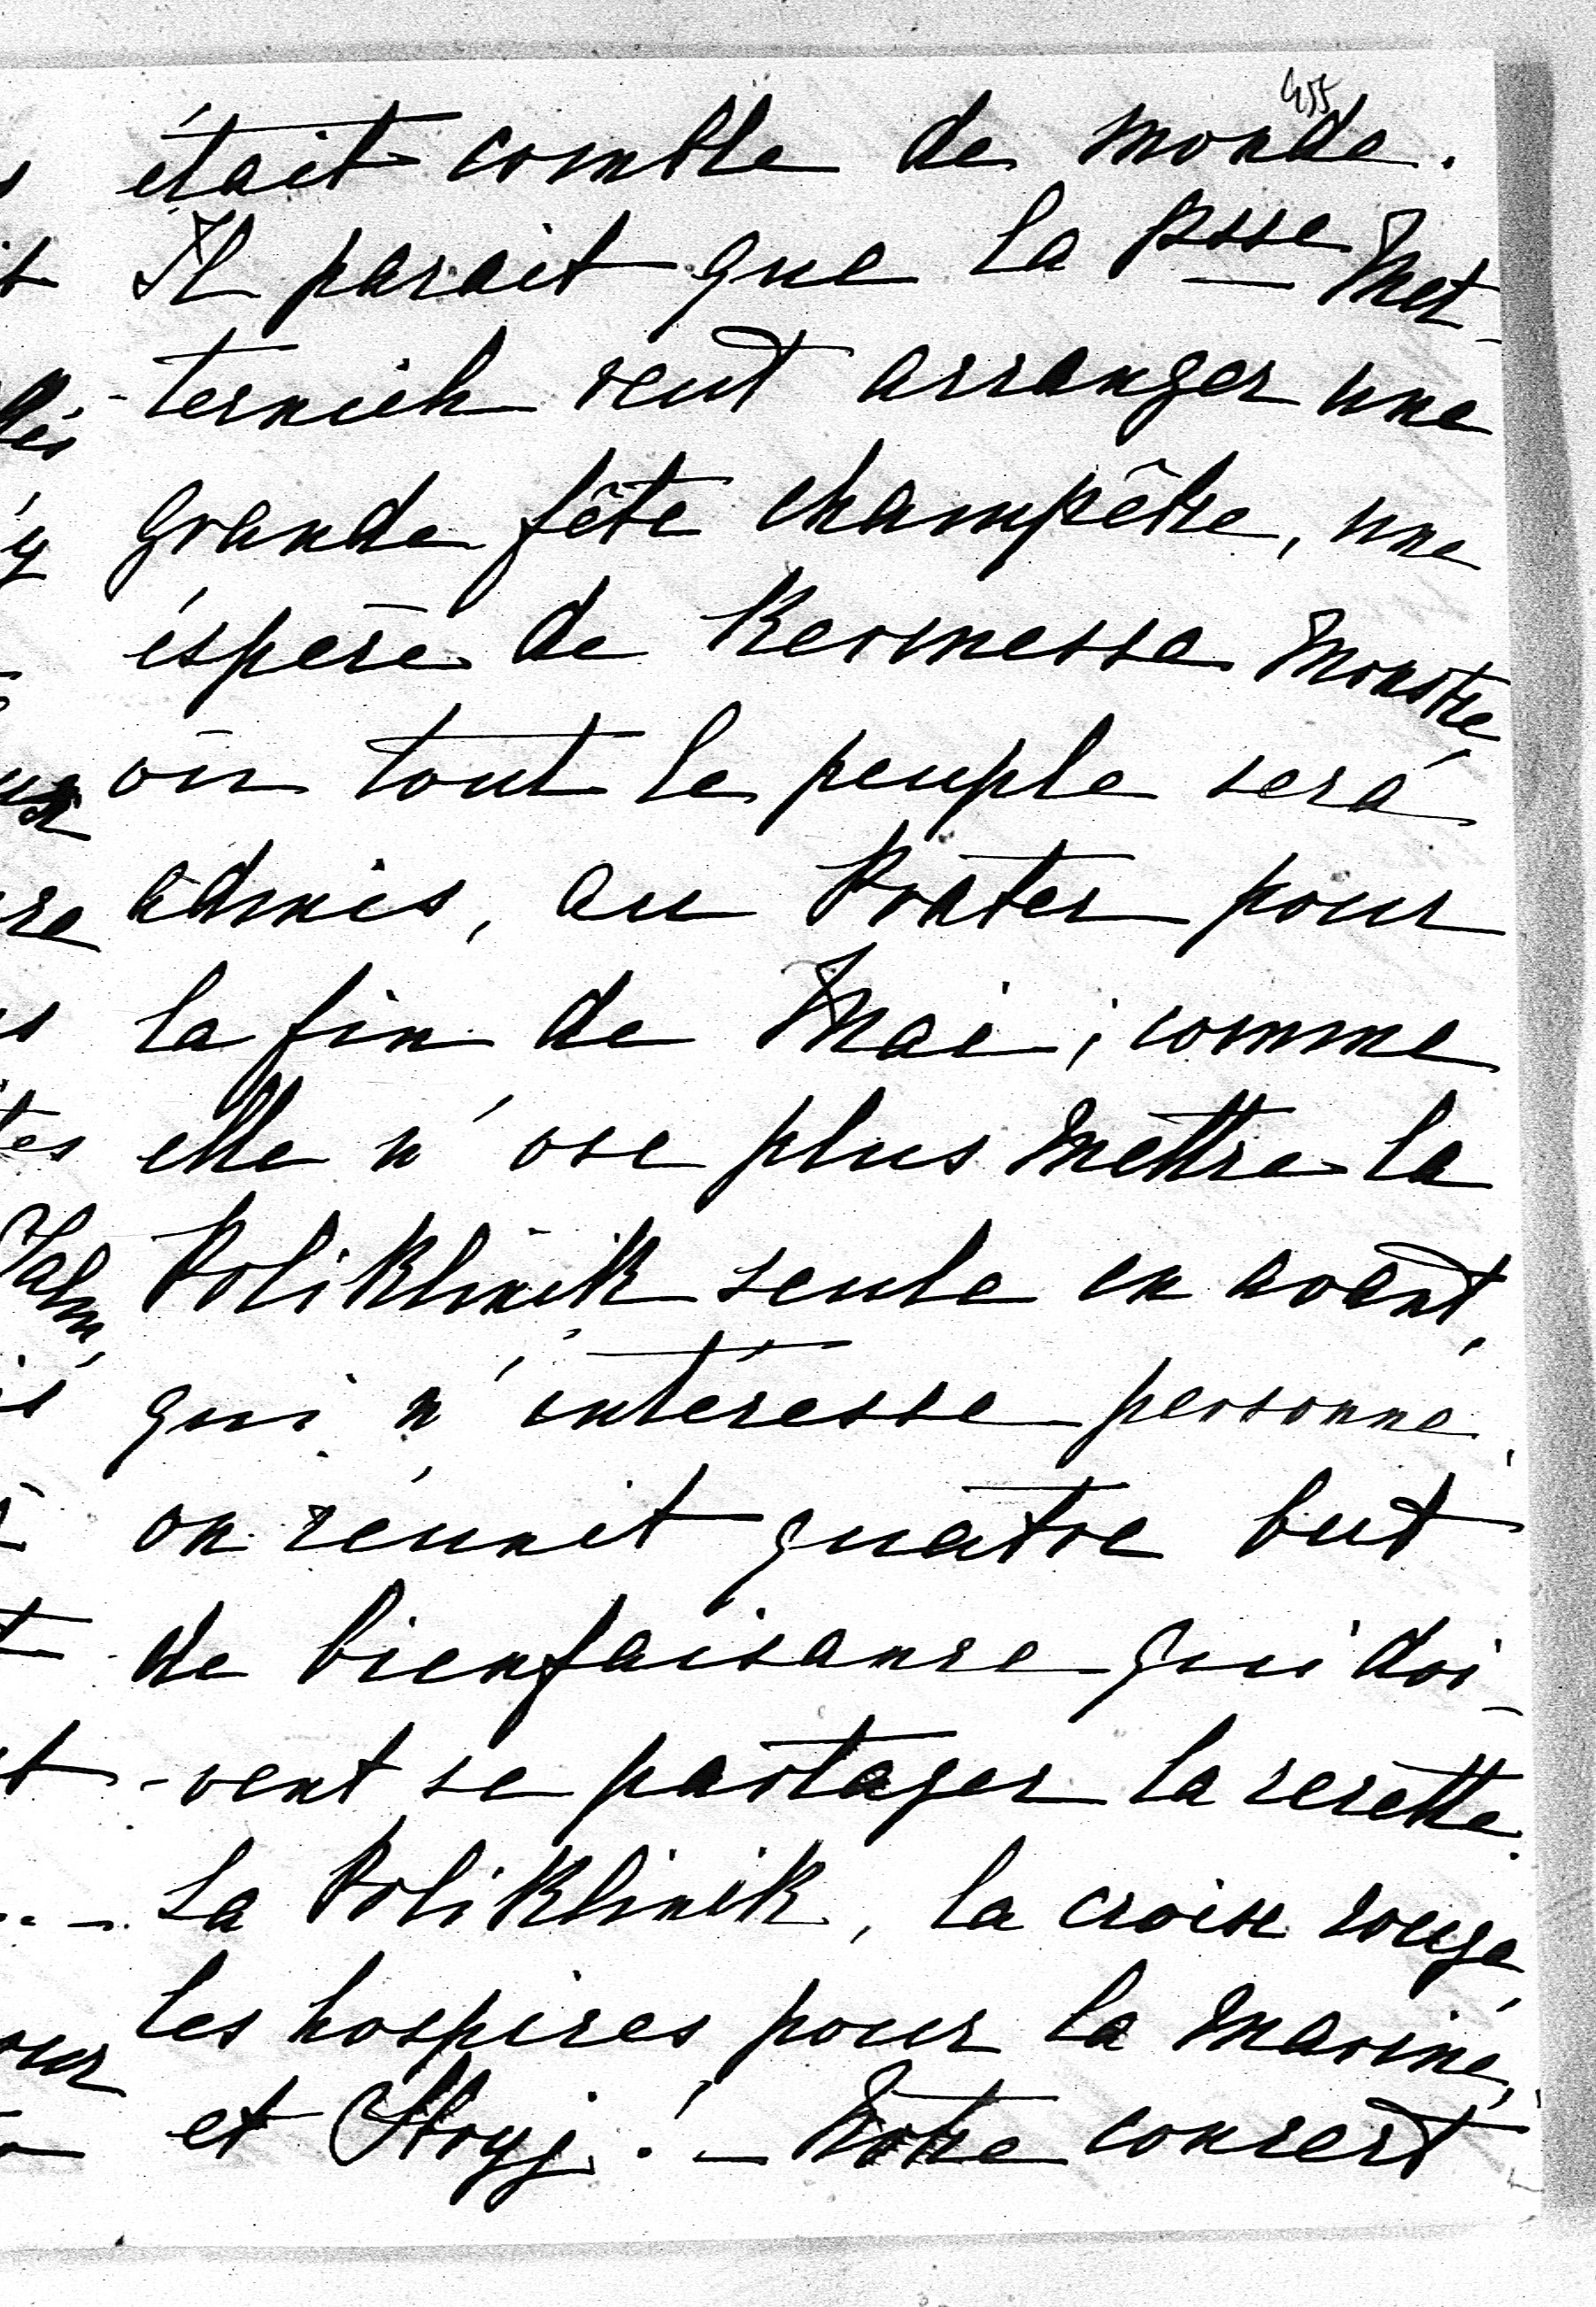 455
était comble de monde.
Il parait que la Psse Met-
-ternich veut arranger une
grande fête champêtre, une
éspèce de Kermesse monstre,
où tout le peuple sera
admis, au Prater pour
la fin de Mai; comme
elle n'ose plus mettre la
Poliklinik seule en avant,
qui n'intéresse personne,
on réunit quatre but
de bienfaisance qui doi-
-vent se partager la recette.
La Poliklinik, la croix rouge,
les hospices pour la marine,
et . – Notre concert